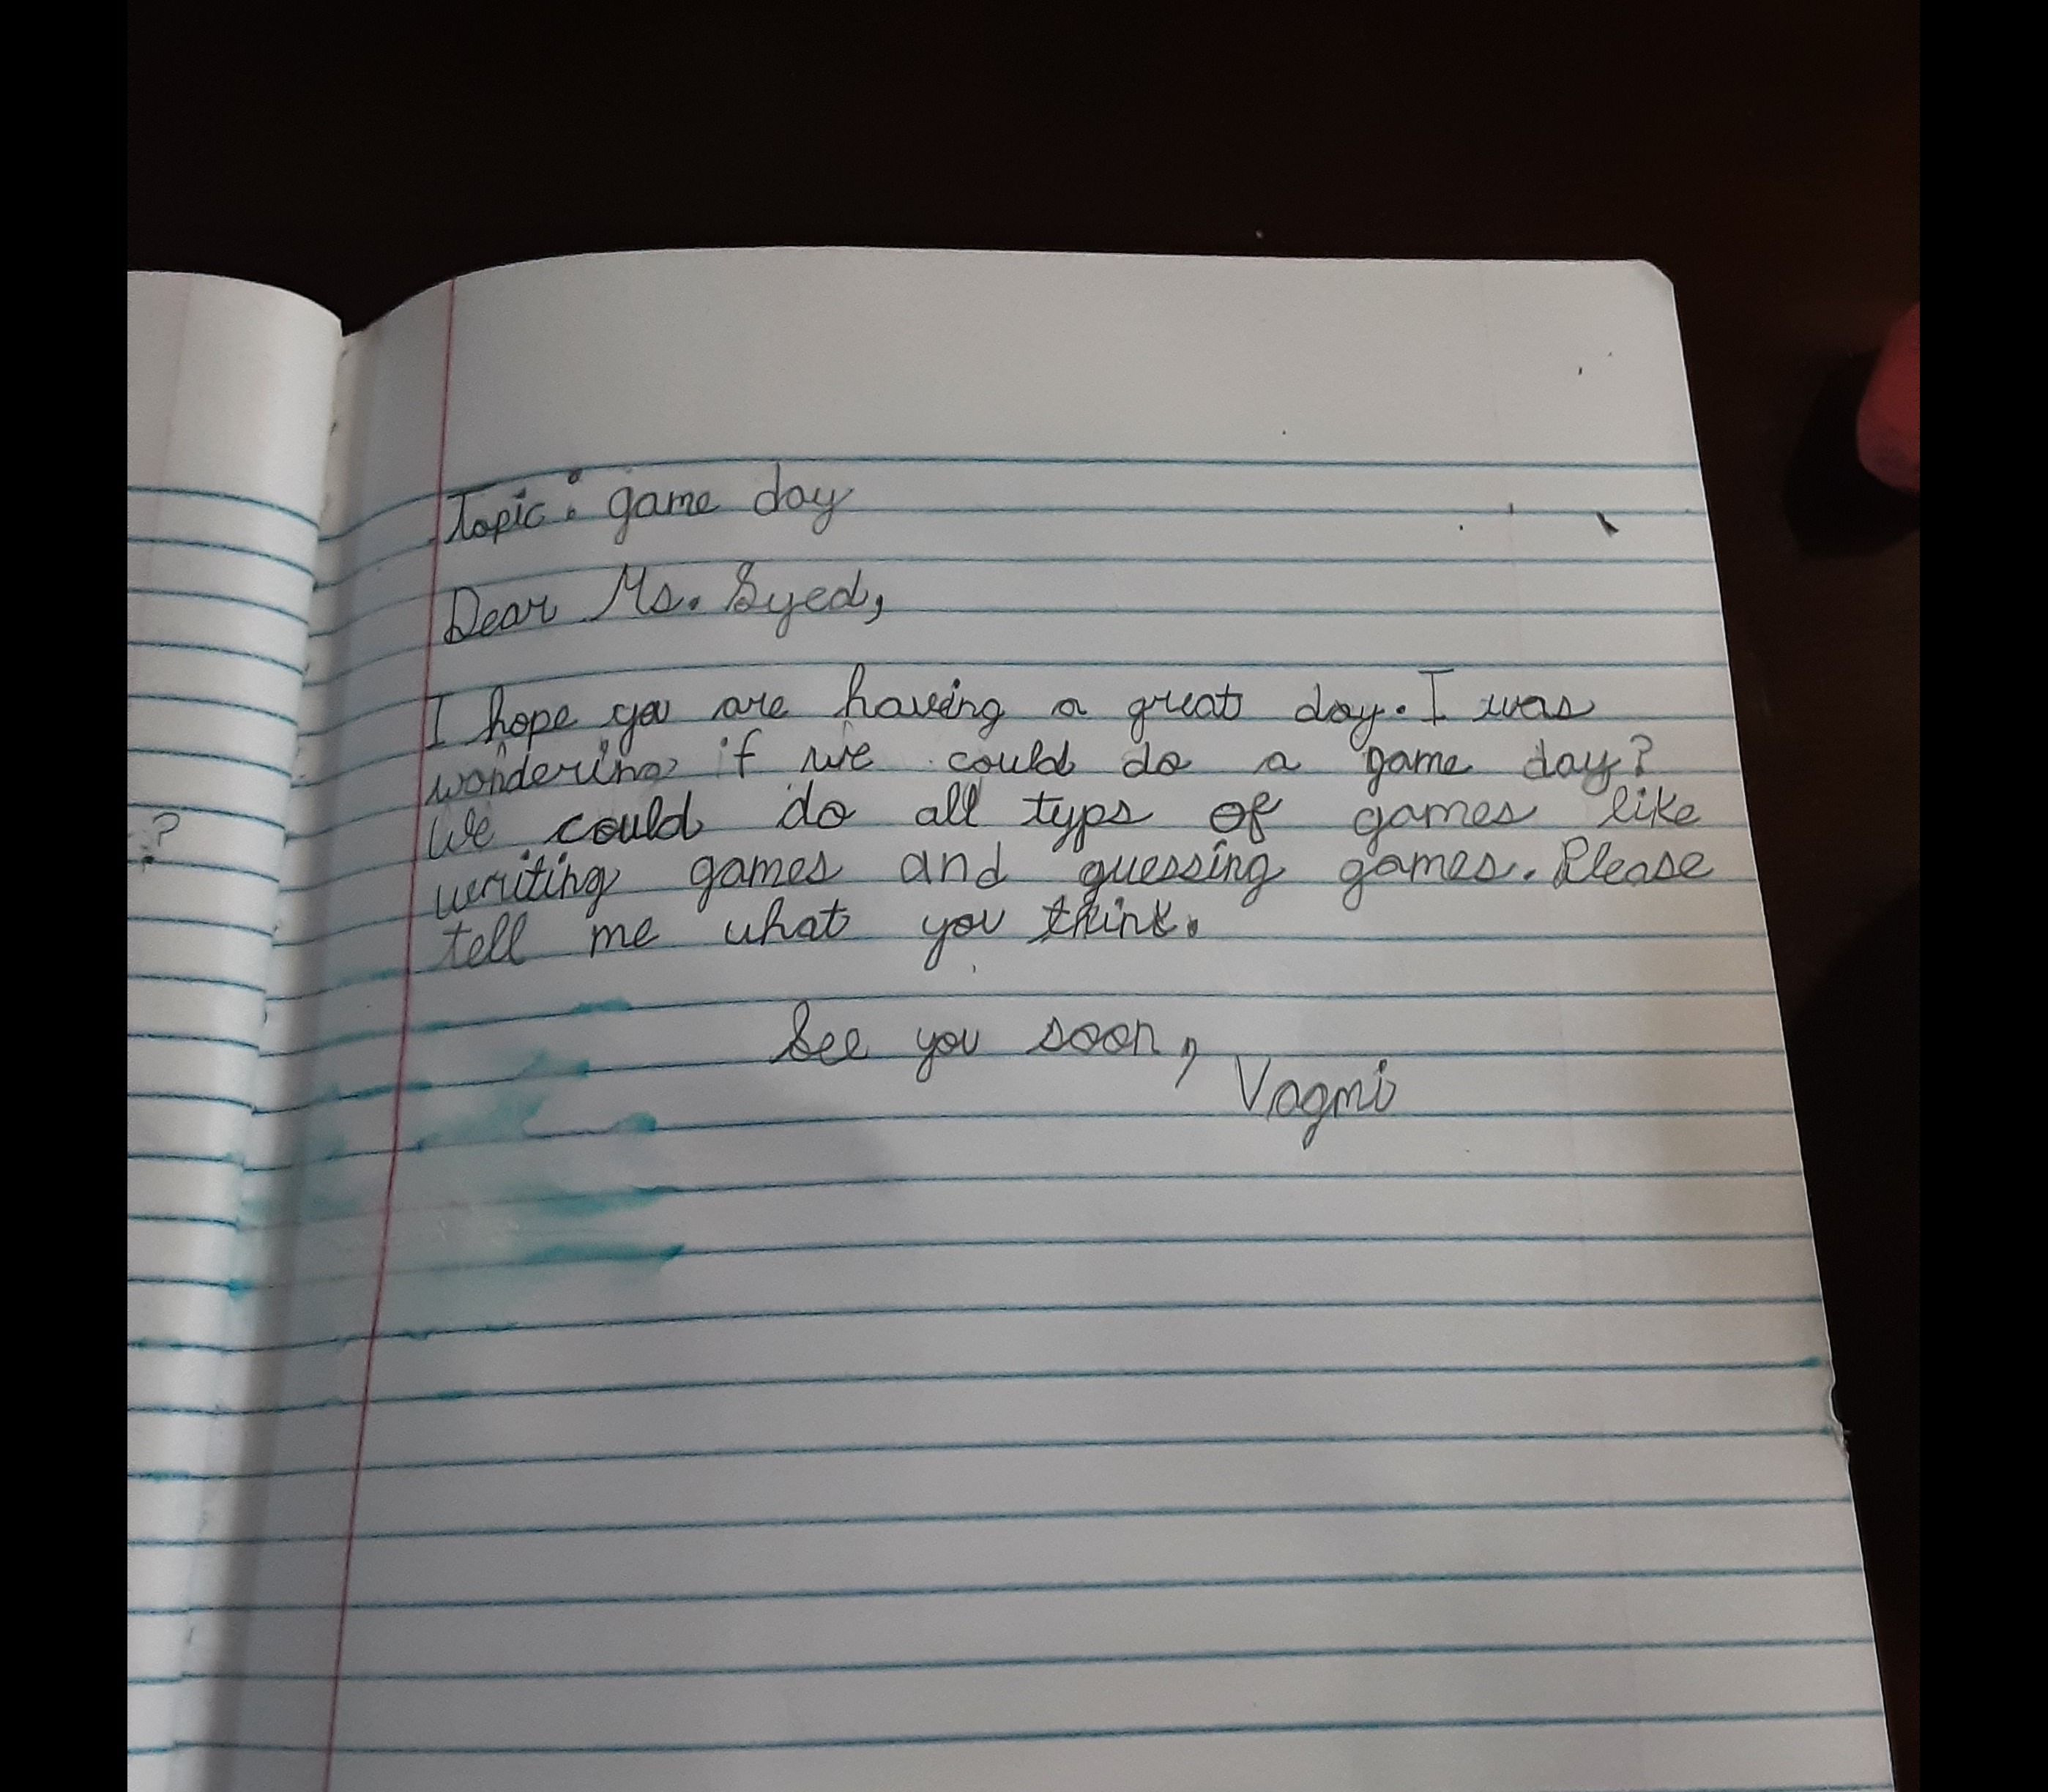 Topic: game day
Dear Ms. Syed,
I hope you are having a great day. I was
wondering if we could do a game day?
We could do all typs of games like
writing games and guessing games. Please
tell me what you think.
See you soon,
Vagmi
?